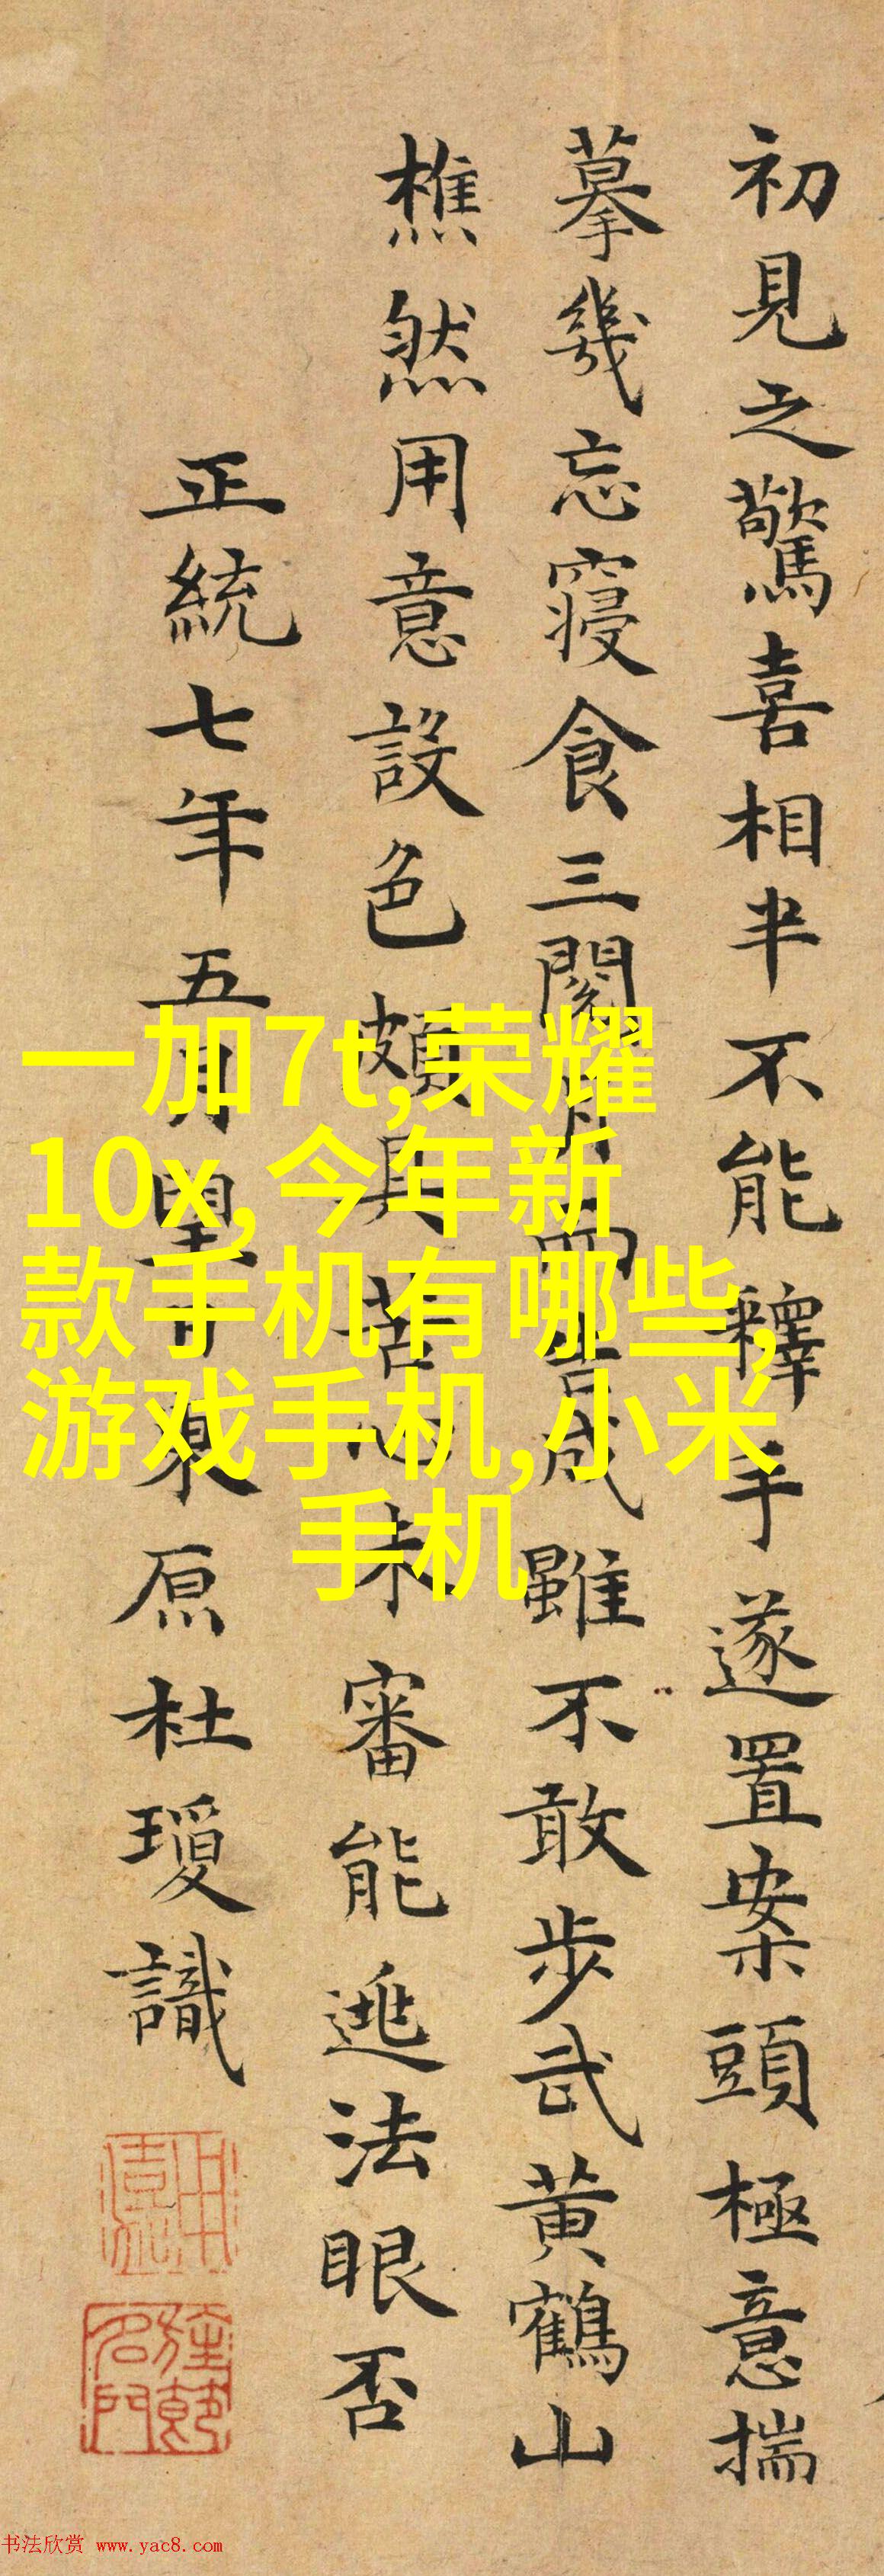 初見之驚喜相半不能釋手遂置案頭極意揣
摹幾忘寢食三閱月而告成雖不敢步武黃鶴山
樵然用意設色頗具苦心未審能逃法眼否
正統七年五月望日東原杜瓊識
一加7t,荣耀
10x,今年新
款手机有哪些,
游戏手机,小米
手机
书法欣赏 www.yac8.com